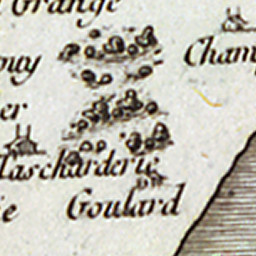 Grange
ouy Cham
er
lascharderie
ie Goulard